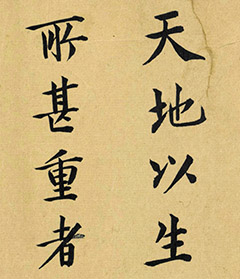 天地以生
所甚重者